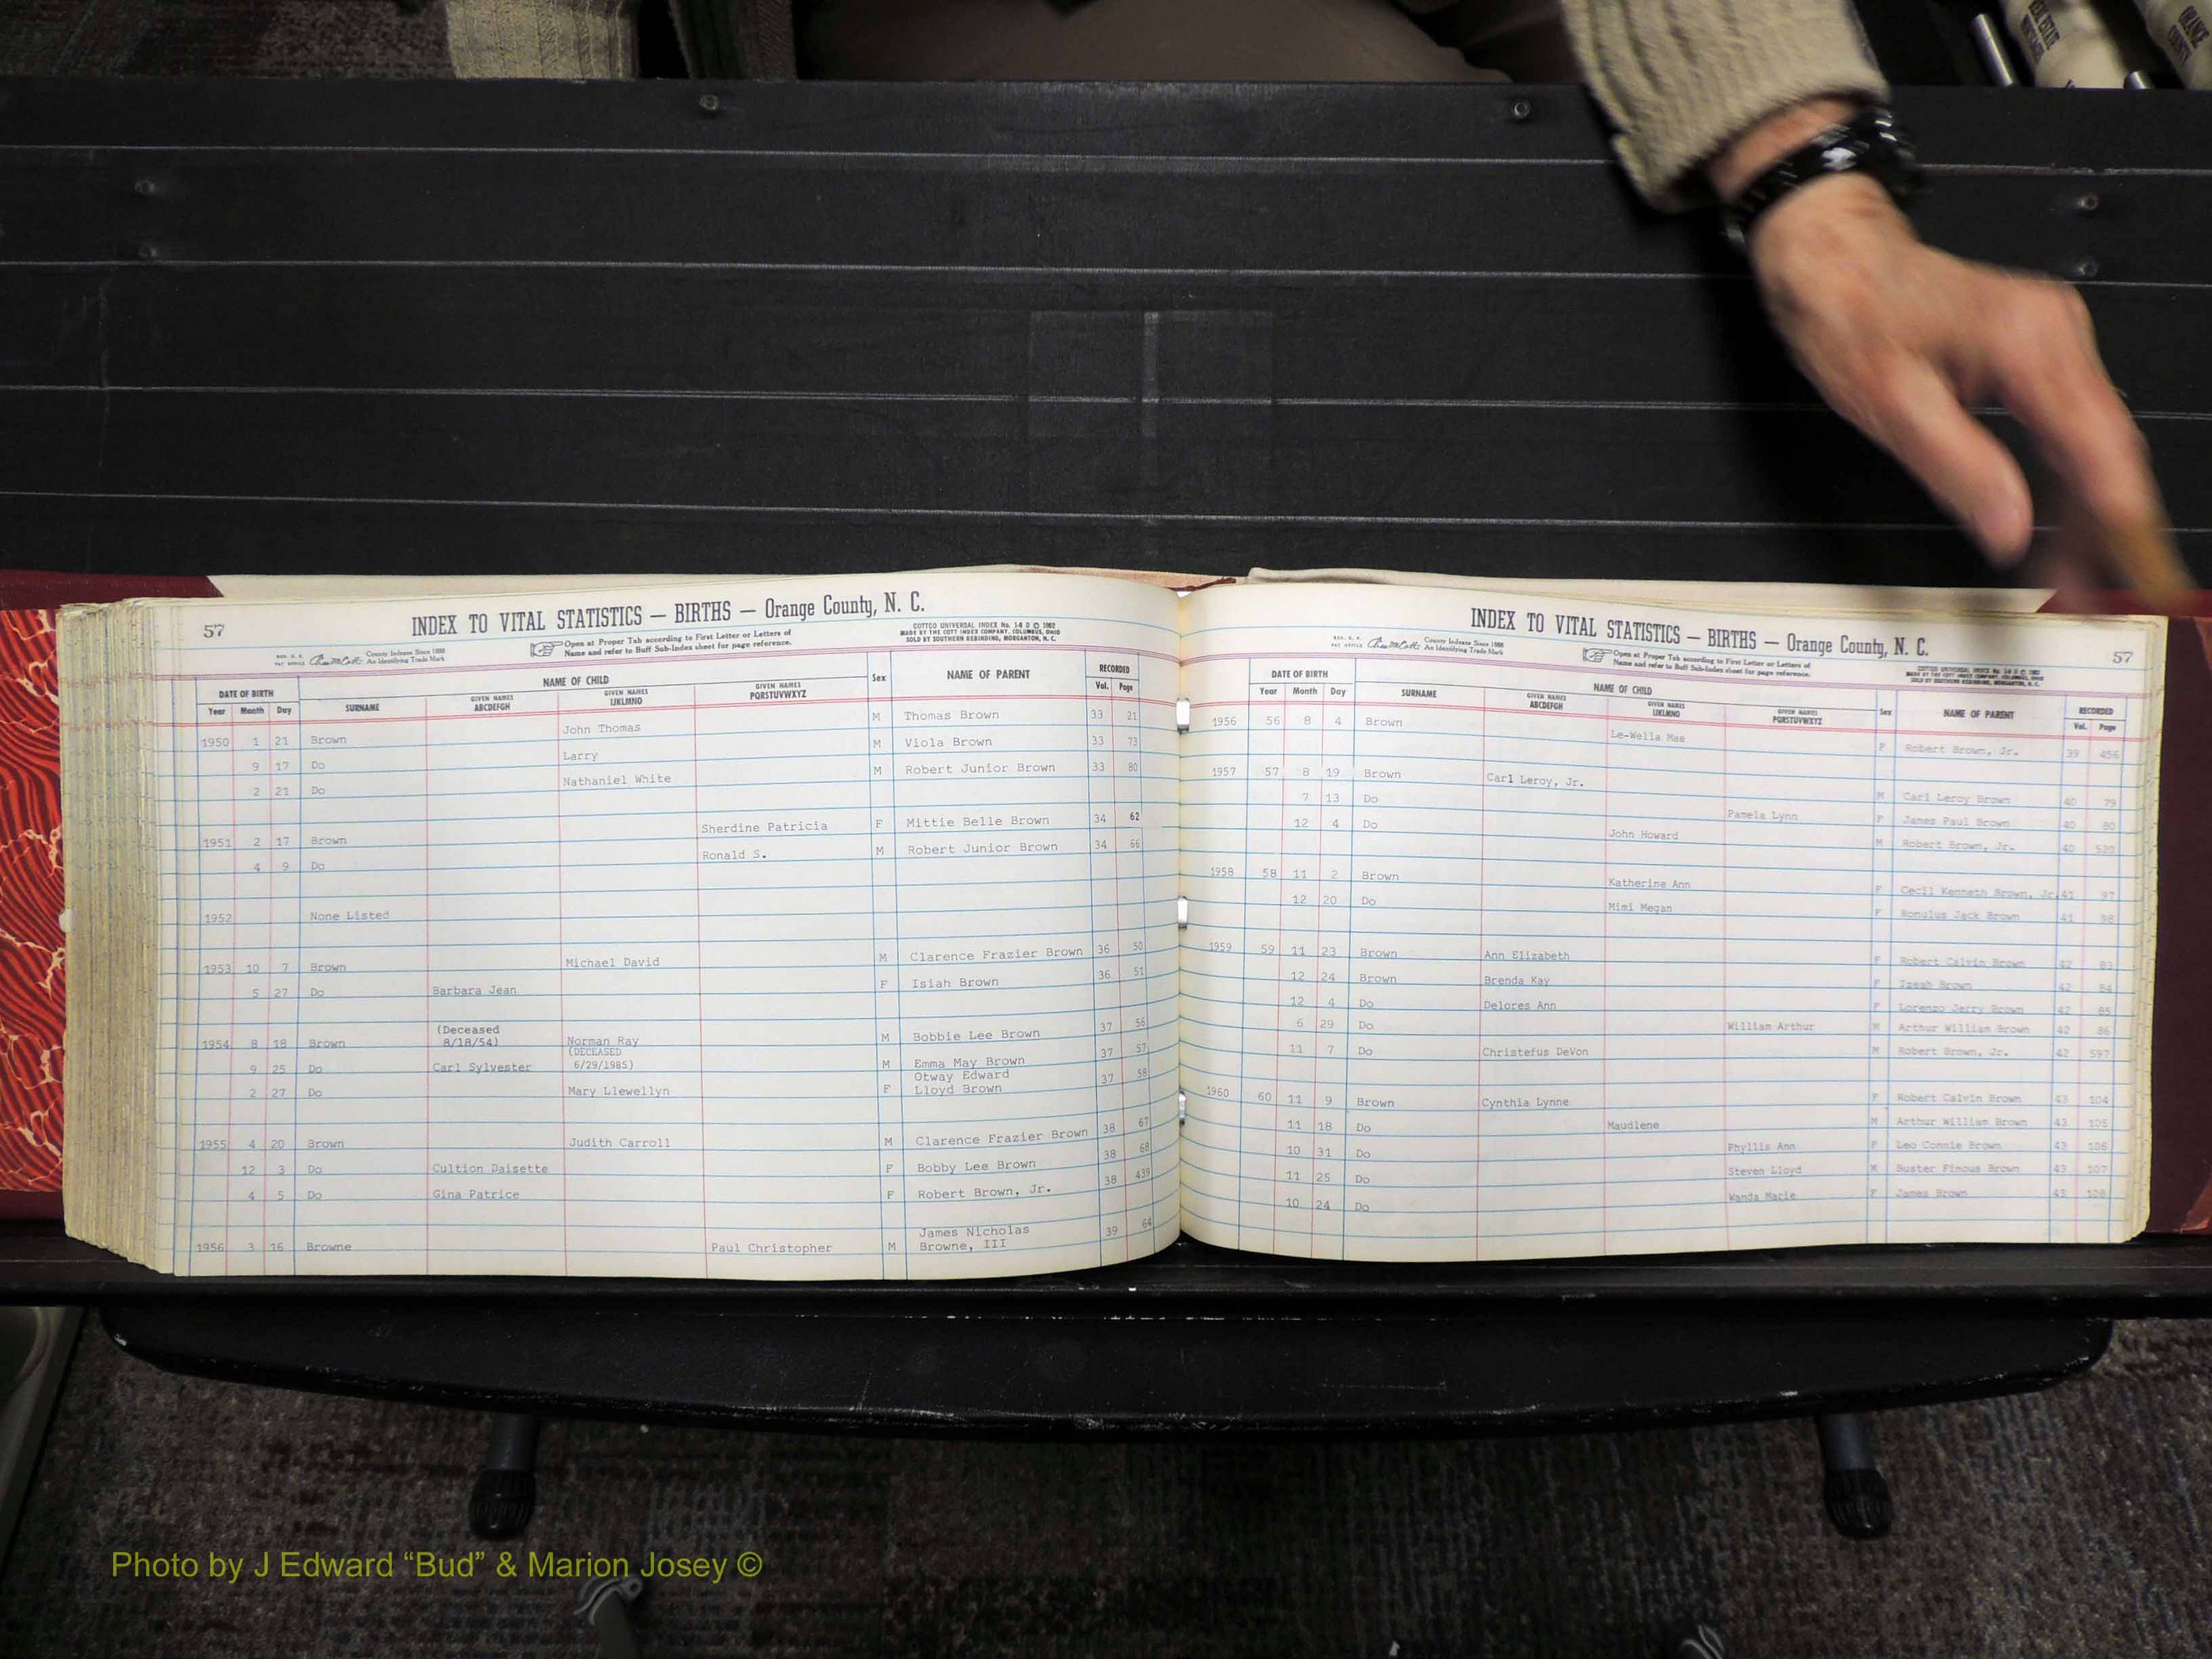 REAL ESTATE
ORANGE COUNTY
57
INDEX TO VITAL STATISTICS — BIRTHS — Orange County, N. C.
County Indexes Since 1888
An Identifying Trade Mark
Open at Proper Tab according to First Letter or Letters of
Name and refer to Buff Sub-Index sheet for page reference.
COTTCO UNIVERSAL INDEX No. 14 D © 1962
MADE BY THE COTT INDEX COMPANY, COLUMBUS, OHIO
SOLD BY SOUTHERN REBINDING, MORGANTON, N. C.
DATE OF BIRTH NAME OF CHILD Sex NAME OF PARENT RECORDED
Year Month Day SURNAME GIVEN NAMES ABCDEFGH GIVEN NAMES IJKLMNO GIVEN NAMES PQRSTUVWXYZ Vol. Page
1950 1 21 Brown John Thomas M Thomas Brown 33 21
9 17 Do Larry M Viola Brown 33 73
2 21 Do Nathaniel White M Robert Junior Brown 33 80
1951 2 17 Brown Sherdine Patricia F Mittie Belle Brown 34 62
4 9 Do Ronald S. M Robert Junior Brown 34 66
1952 None Listed
1953 10 7 Brown Michael David M Clarence Frazier Brown 36 50
5 27 Do Barbara Jean F Isiah Brown 36 51
(Deceased
1954 8 18 Brown 8/18/54) Norman Ray M Bobbie Lee Brown 37 56
(DECEASED
9 25 Do Carl Sylvester 6/29/1985) M Emma May Brown 37 57
Otway Edward
2 27 Do Mary Llewellyn F Lloyd Brown 37 58
1955 4 20 Brown Judith Carroll M Clarence Frazier Brown 38 67
12 3 Do Cultion Daisette F Bobby Lee Brown 38 68
4 5 Do Gina Patrice F Robert Brown, Jr. 38 439
James Nicholas
1956 3 16 Browne Paul Christopher M Browne, III 39 64
INDEX TO VITAL STATISTICS — BIRTHS — Orange County, N. C.
57
County Indexes Since 1888
An Identifying Trade Mark
Open at Proper Tab according to First Letter or Letters of
Name and refer to Buff Sub-Index sheet for page reference.
DATE OF BIRTH NAME OF CHILD Sex NAME OF PARENT RECORDED
Year Month Day SURNAME GIVEN NAMES ABCDEFGH GIVEN NAMES IJKLMNO GIVEN NAMES PQRSTUVWXYZ Vol. Page
1956 56 8 4 Brown Le-Wella Mae F Robert Brown, Jr. 39 456
1957 57 8 19 Brown Carl Leroy, Jr. M Carl Leroy Brown 40 79
7 13 Do Pamela Lynn F James Paul Brown 40 80
12 4 Do John Howard M Robert Brown, Jr. 40 520
1958 58 11 2 Brown Katherine Ann F Cecil Kenneth Brown, Jr. 41 97
12 20 Do Mimi Megan F Romulus Jack Brown 41 98
1959 59 11 23 Brown Ann Elizabeth F Robert Calvin Brown 42 83
12 24 Brown Brenda Kay F Brown 42 84
12 4 Do Delores Ann F Lorenzo Jerry Brown 42 85
6 29 Do William Arthur M Arthur William Brown 42 86
11 7 Do Christefus DeVon M Robert Brown, Jr. 42 597
1960 60 11 9 Brown Cynthia Lynne F Robert Calvin Brown 43 104
11 18 Do Maudlene M Arthur William Brown 43 105
10 31 Do Phyllis Ann F Leo Connie Brown 43 106
11 25 Do Steven Lloyd M Buster Finous Brown 43 107
10 24 Do Wanda Marie F James Brown 43 108
Photo by J Edward “Bud” & Marion Josey ©